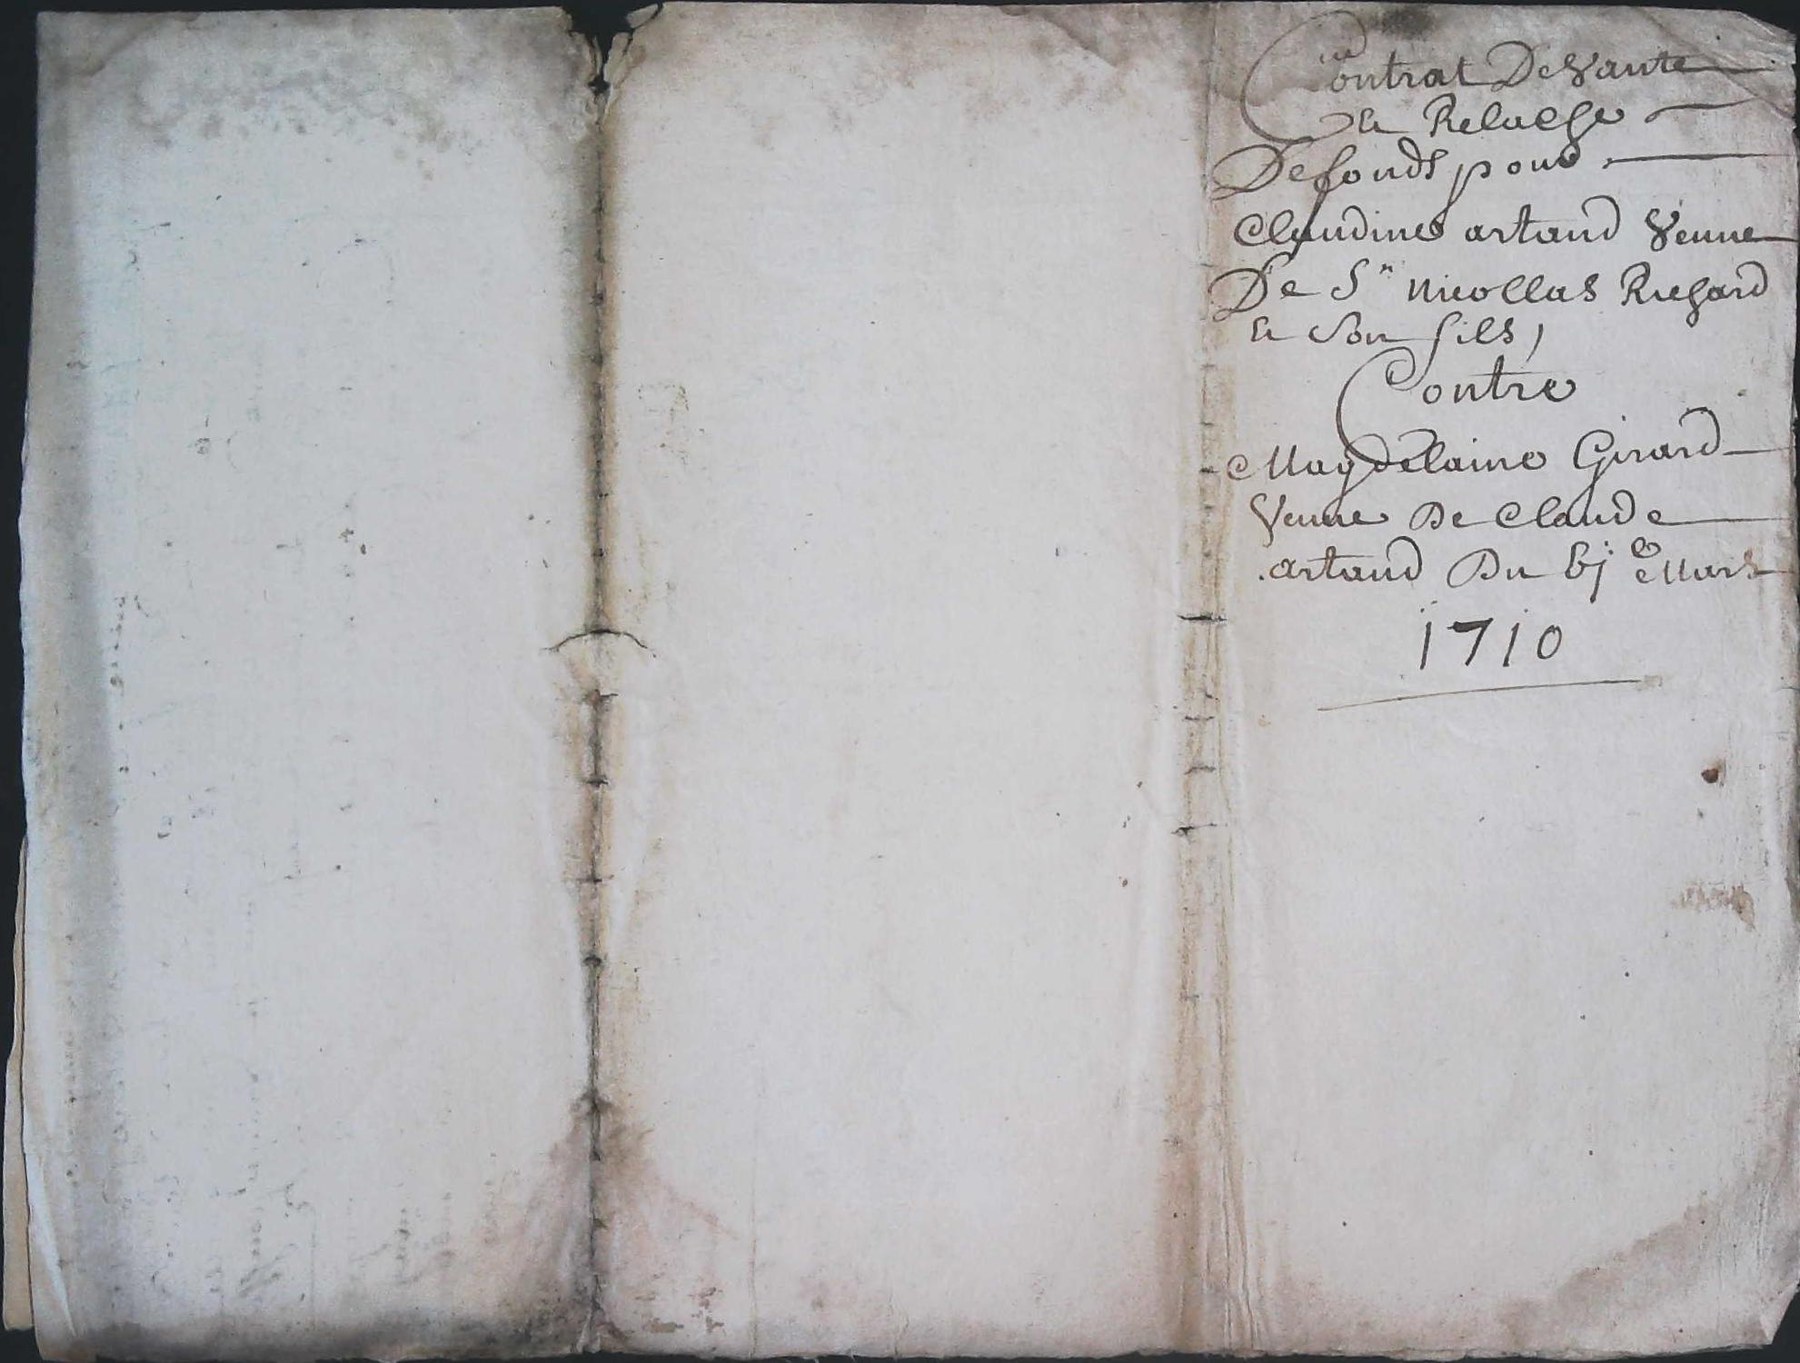 Contrat De Vante
et Relache
De fonds pour
Claudine artaud Veuve
De Sr Nicollas Richard
et Son fils,
Contre
Magdelaine Girard
Veuve De Claude
artaud Du bj e Mars
1710